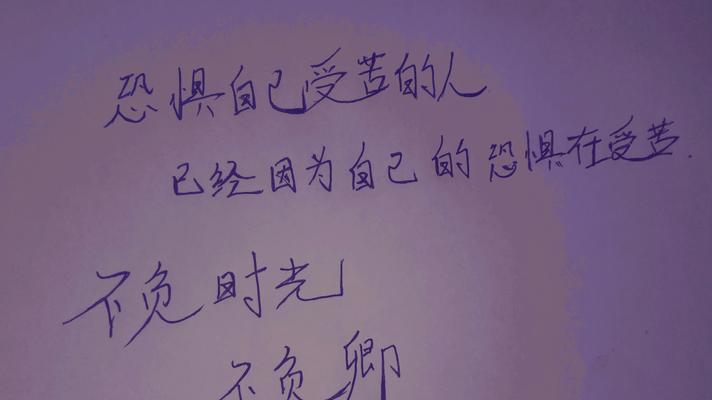 恐惧自己受苦的人
已经因为自己的恐惧在受苦.
不负时光
不负卿